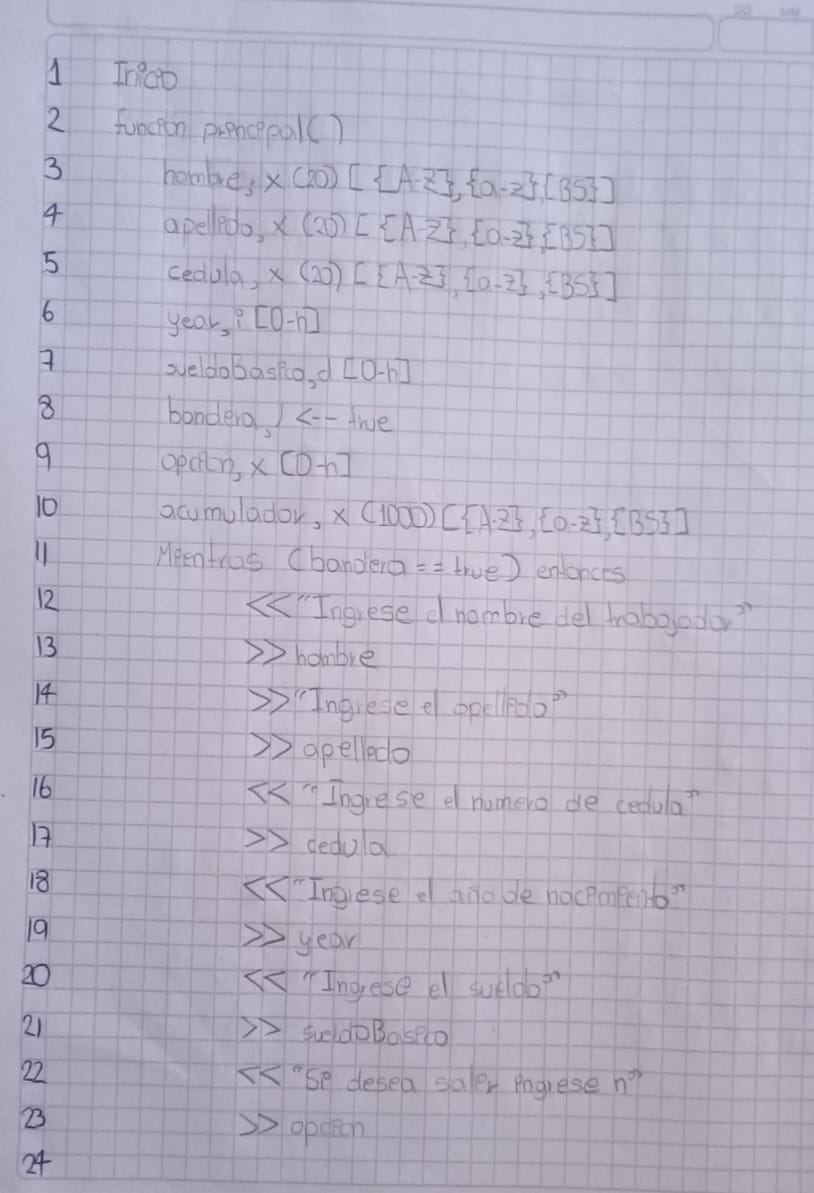 1 Inicio
2 funcion principal()
3 nombre, x (20) [{A-Z},{a-z},{BS}]
4 apellido, x (20) [{A-Z},{a-z},{BS}]
5 cedula, x (20) [{A-Z},{a-z},{BS}]
6 year, i [0-n]
7 sueldoBasico, d [0-n]
8 bandera, l <-- true
9 opcion, x [0-n]
10 acumulador, x (1000) [{A-Z},{a-z},{BS}]
11 Mientras (bandera == true) entonces
12 <<"Ingrese el nombre del trabajador"
13 >> nombre
14 >>"Ingrese el apellido"
15 >> apellido
16 <<"Ingrese el numero de cedula"
17 >> cedula
18 <<"Ingrese el año de nacimiento"
19 >> year
20 <<"Ingrese el sueldo"
21 >> sueldoBasico
22 <<"Si desea salir ingrese n"
23 >> opcion
24